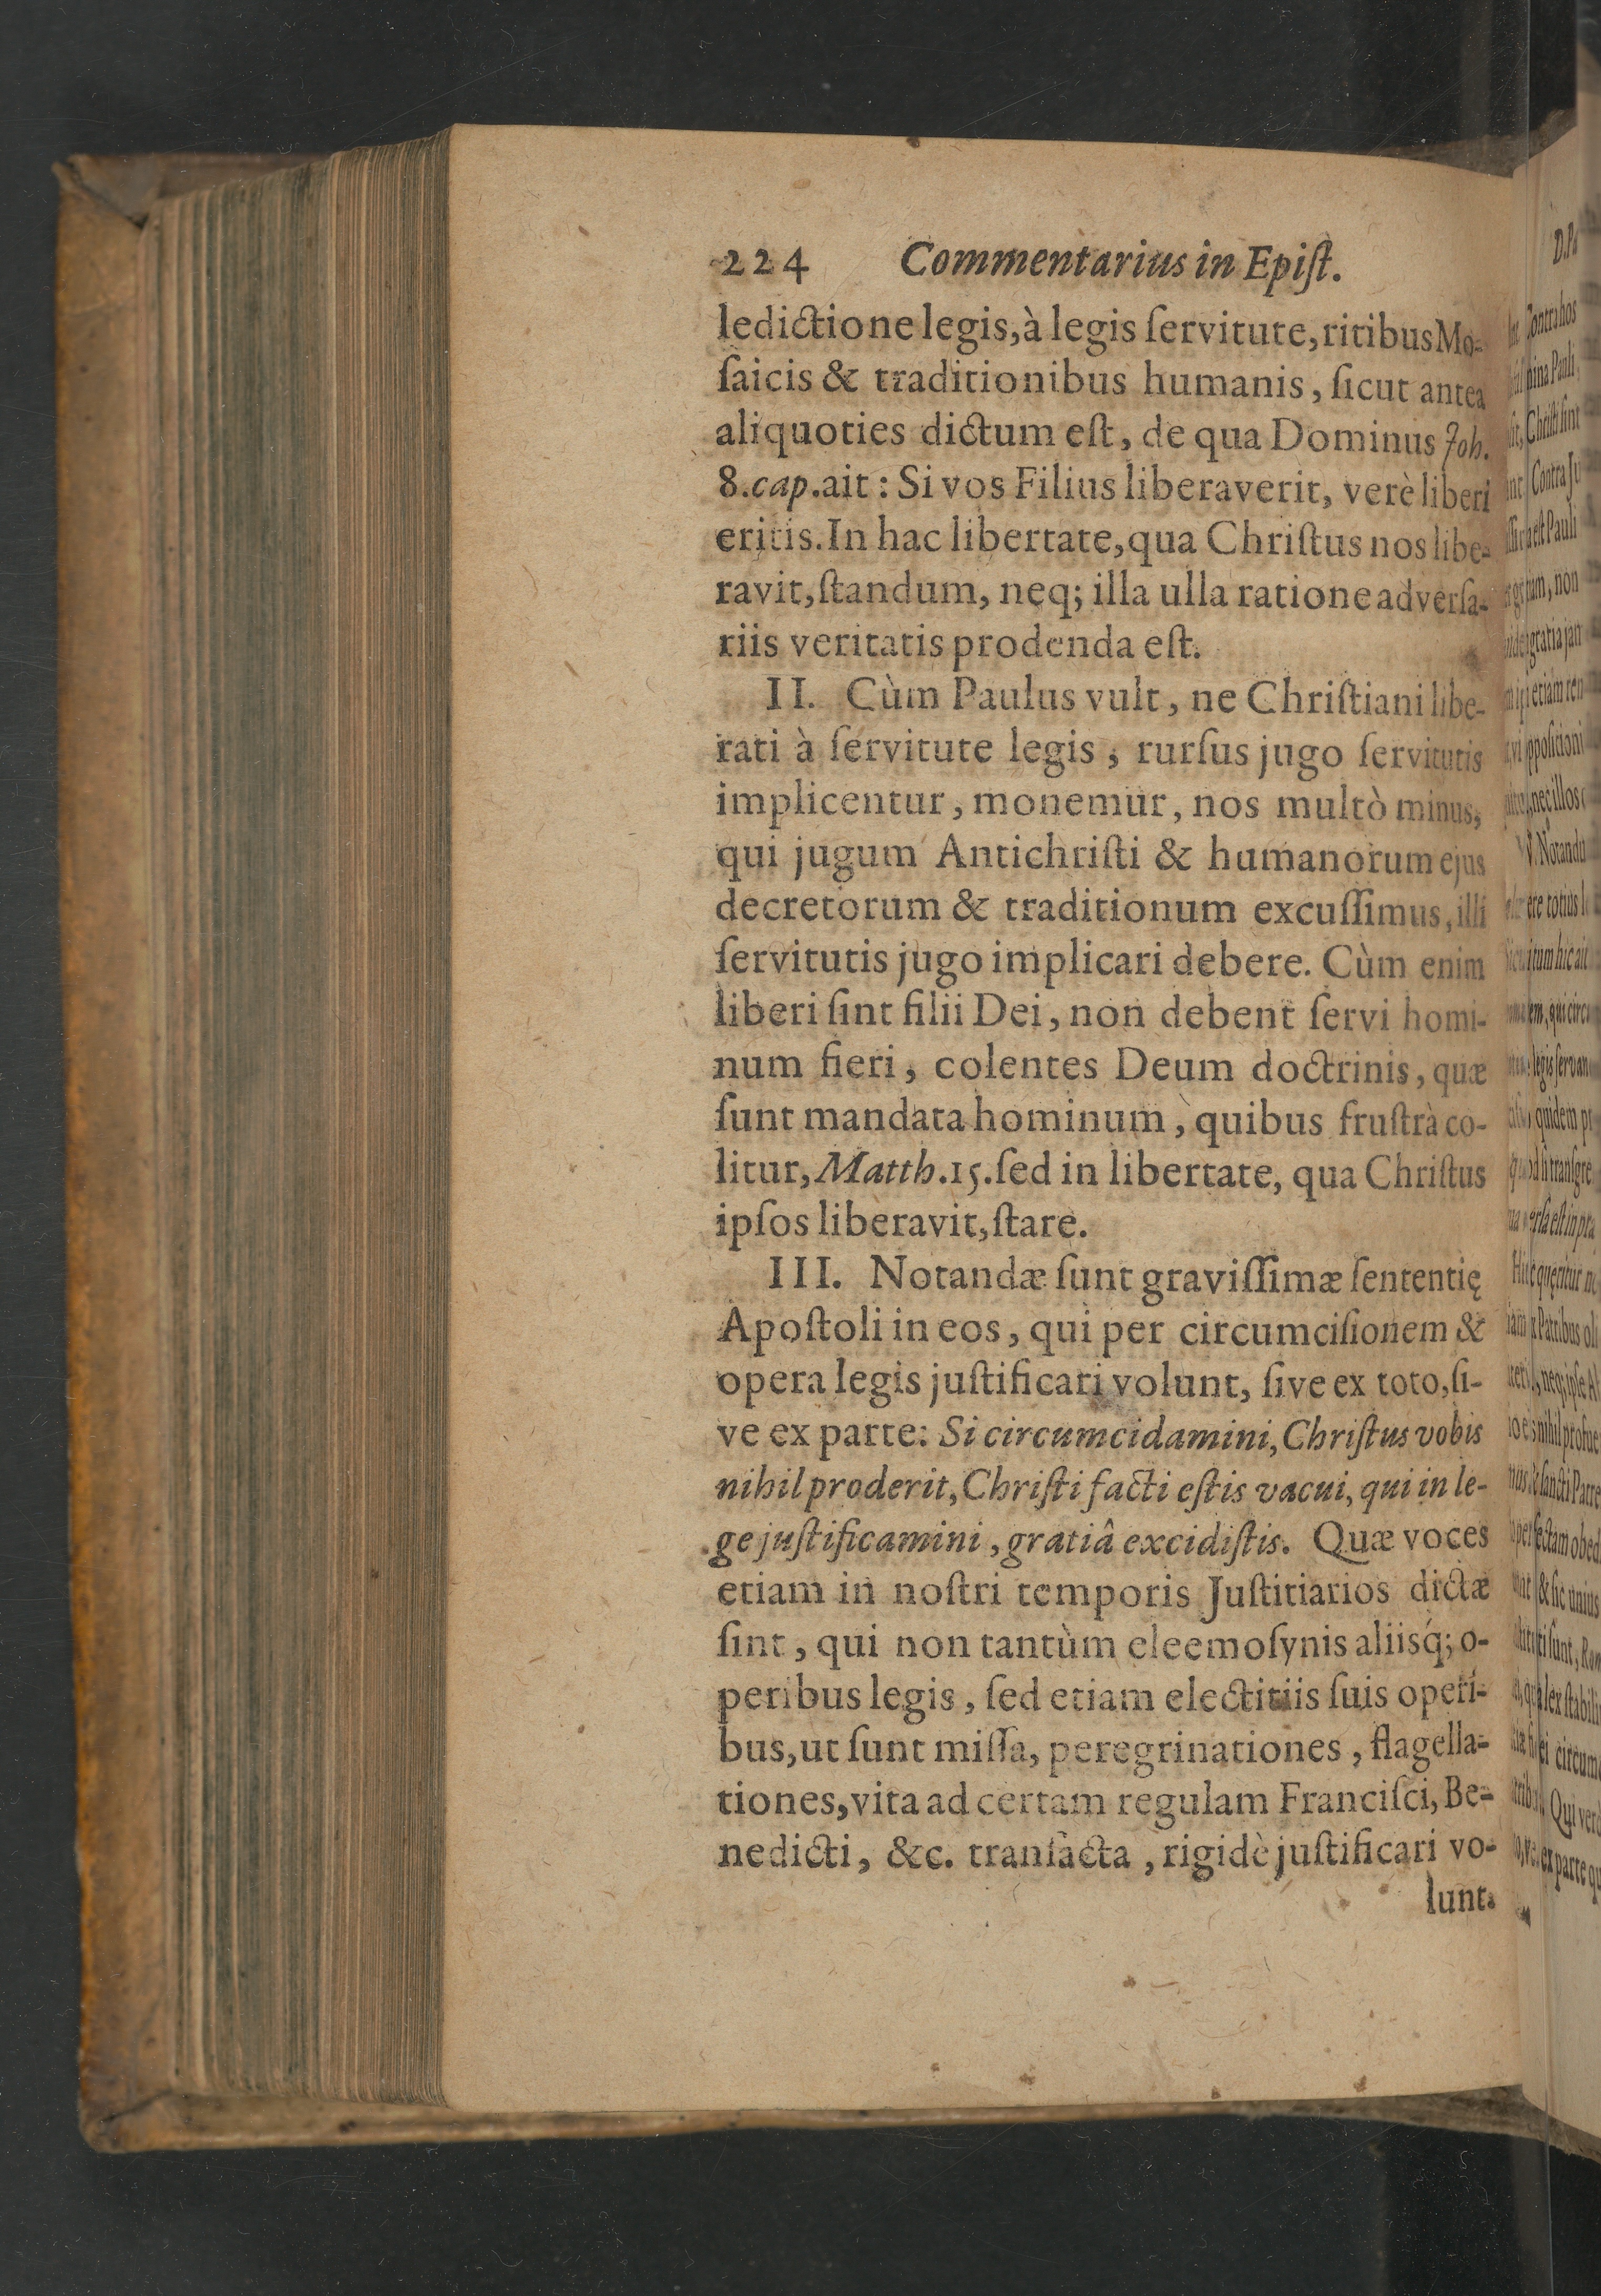 224 Commentarius in Epiſt.
ledictione legis, à legis ſervitute, ritibus Mo-
ſaicis & traditionibus humanis, ſicut antea
aliquoties dictum eſt, de qua Dominus Joh.
8. cap. ait: Si vos Filius liberaverit, verè liberi
eritis. In hac libertate, qua Chriſtus nos libe-
ravit, ſtandum, neq; illa ulla ratione adverſa-
riis veritatis prodenda eſt.
II. Cùm Paulus vult, ne Chriſtiani libe-
rati à ſervitute legis, rurſus jugo ſervitutis
implicentur, monemur, nos multò minus,
qui jugum Antichriſti & humanorum ejus
decretorum & traditionum excuſſimus, illi
ſervitutis jugo implicari debere. Cùm enim
liberi ſint filii Dei, non debent ſervi homi-
num fieri, colentes Deum doctrinis, quæ
ſunt mandata hominum, quibus fruſtrà co-
litur, Matth. 15. ſed in libertate, qua Chriſtus
ipſos liberavit, ſtare.
III. Notandæ ſunt graviſſimæ ſententię
Apoſtoli in eos, qui per circumciſionem &
opera legis juſtificari volunt, ſive ex toto, ſi-
ve ex parte: Si circumcidamini, Chriſtus vobis
nihil proderit, Chriſti facti eſtis vacui, qui in le-
ge juſtificamini, gratiâ excidiſtis. Quæ voces
etiam in noſtri temporis Juſtitiarios dictæ
ſint, qui non tantùm eleemoſynis aliisq́; o-
peribus legis, ſed etiam electitiis ſuis operi-
bus, ut ſunt miſſa, peregrinationes, flagella-
tiones, vita ad certam regulam Franciſci, Be-
nedicti, &c. tranſacta, rigidè juſtificari vo-
lunt.